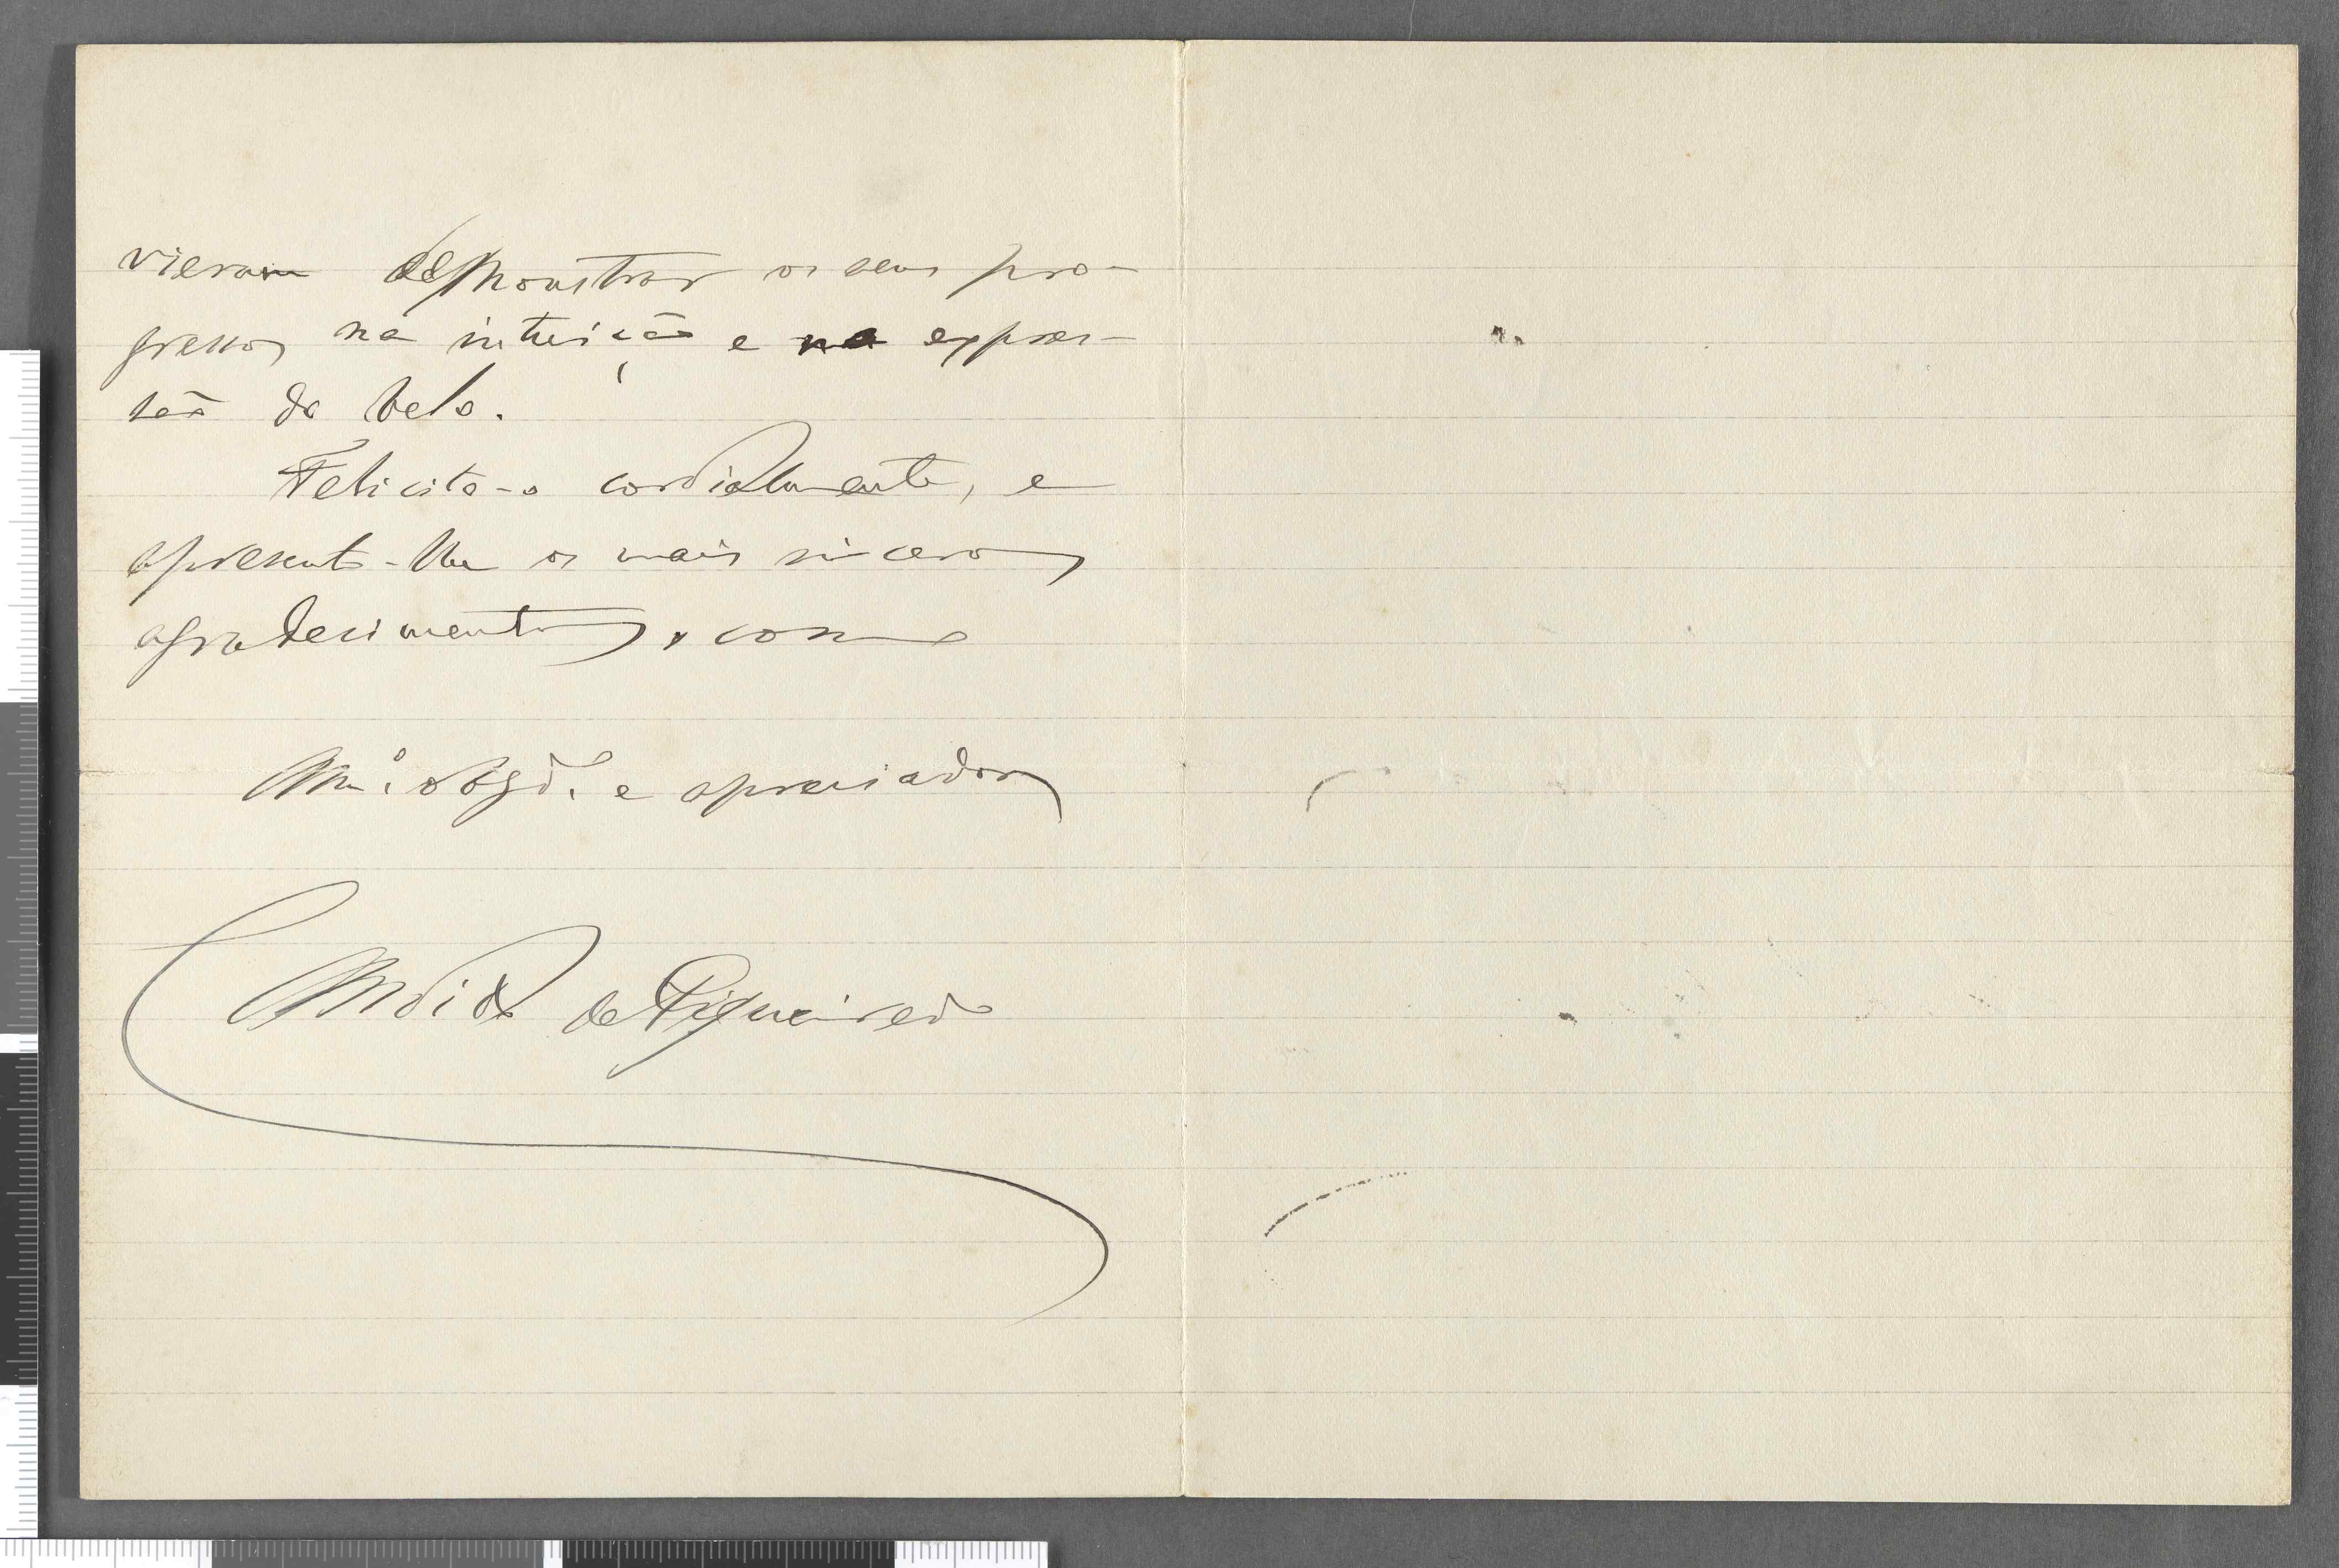 vieram demonstrar os seus pro-
gressos na intuição e na expres-
são do belo.
Felicito-o cordialmente, e
apresento-lhe os mais sinceros
agradecimentos, como
Mº. obgdº. e apreciador
Candido de Figueiredo